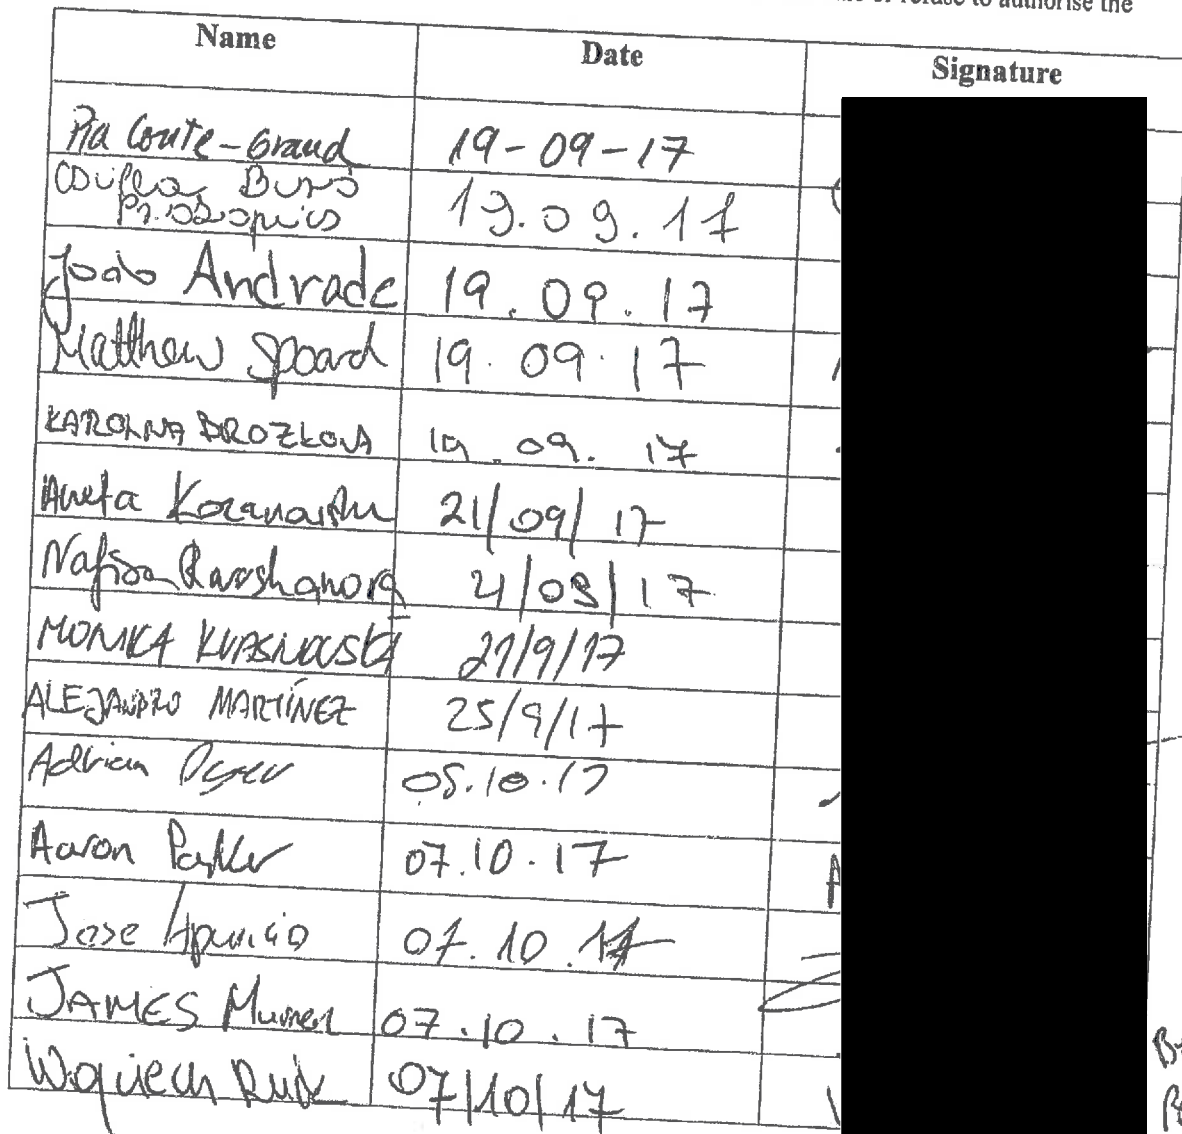 refuse to authorise the
Name Date Signature
Pia Conte-Grand 19-09-17
19.09.17
João Andrade 19.09.17
Matthew Spoard 19.09.17
KAROLINA DROZKOVA 19.09.17
Aneta 21/09/17
Nafisa Ravshanova 21/09/17
MONIKA KVASNOVSKÁ 21/9/17
ALEJANDRO MARTÍNEZ 25/9/17
Adrian 05.10.17
Aaron Parker 07.10.17
Jose Aparicio 07.10.17
JAMES 07.10.17
Wojciech 07/10/17